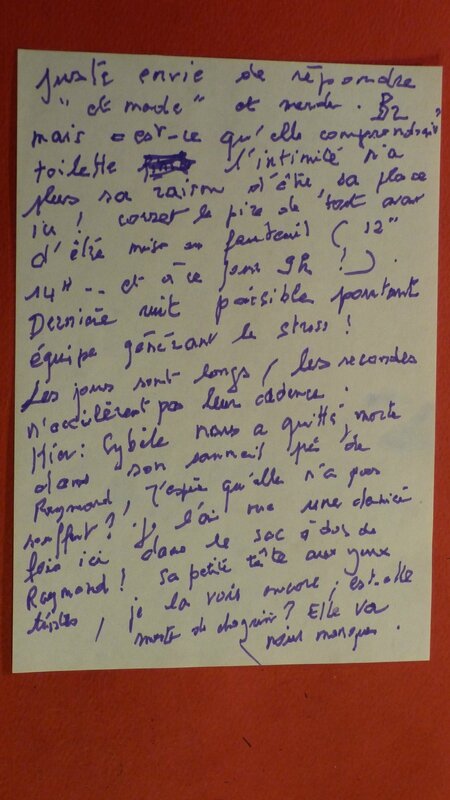 juste envie de répondre
"et merde" et merde.
mais est-ce qu'elle comprendrait"
toilette l'intimité n'a
plus sa raison d'être, sa place
ici ! corset le pire de tout avant
d'être mise en fauteuil ( 12"
14H -- et à ce jour 9h ! ).
Dernière nuit paisible pourtant
équipe générant le stress !
Les jours sont longs, les secondes
n'accélèrent pas leur cadence.
Hier : Cybèle nous a quitté, morte
dans son sommeil près de
Raymond, j'espère qu'elle n'a pas
souffert ? Je l'ai vue une dernière
fois ici dans le sac à dos de
Raymond ! Sa petite tête aux yeux
tristes, je la vois encore ; est-elle
morte de chagrin ? Elle va
nous manquer.